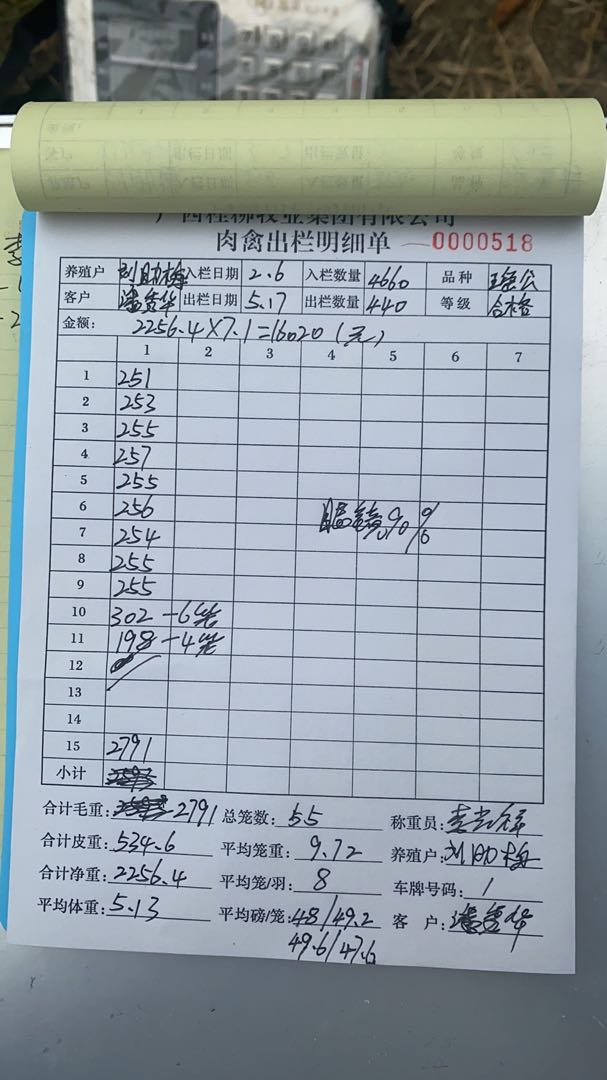 广西桂柳牧业集团有限公司
肉禽出栏明细单 0000518
养殖户 刘助梅 入栏日期 2.6 入栏数量 4660 品种 瑶公
客户 出栏日期 5.17 出栏数量 440 等级 合格
金额: 2256.4×7.1=16020(元)
1 2 3 4 5 6 7
1 251
2 253
3 255
4 257
5 255
6 256
7 254
8 255
9 255
10 302 -6笼
11 198 -4笼
12
13
14
15 2791
小计
合计毛重: 2791 总笼数: 55 称重员:
合计皮重: 534.6 平均笼重: 9.72 养殖户: 刘助梅
合计净重: 2256.4 平均笼/羽: 8 车牌号码: 1
平均体重: 5.13 平均磅/笼: 48/49.2 客户:
49.6/47.6